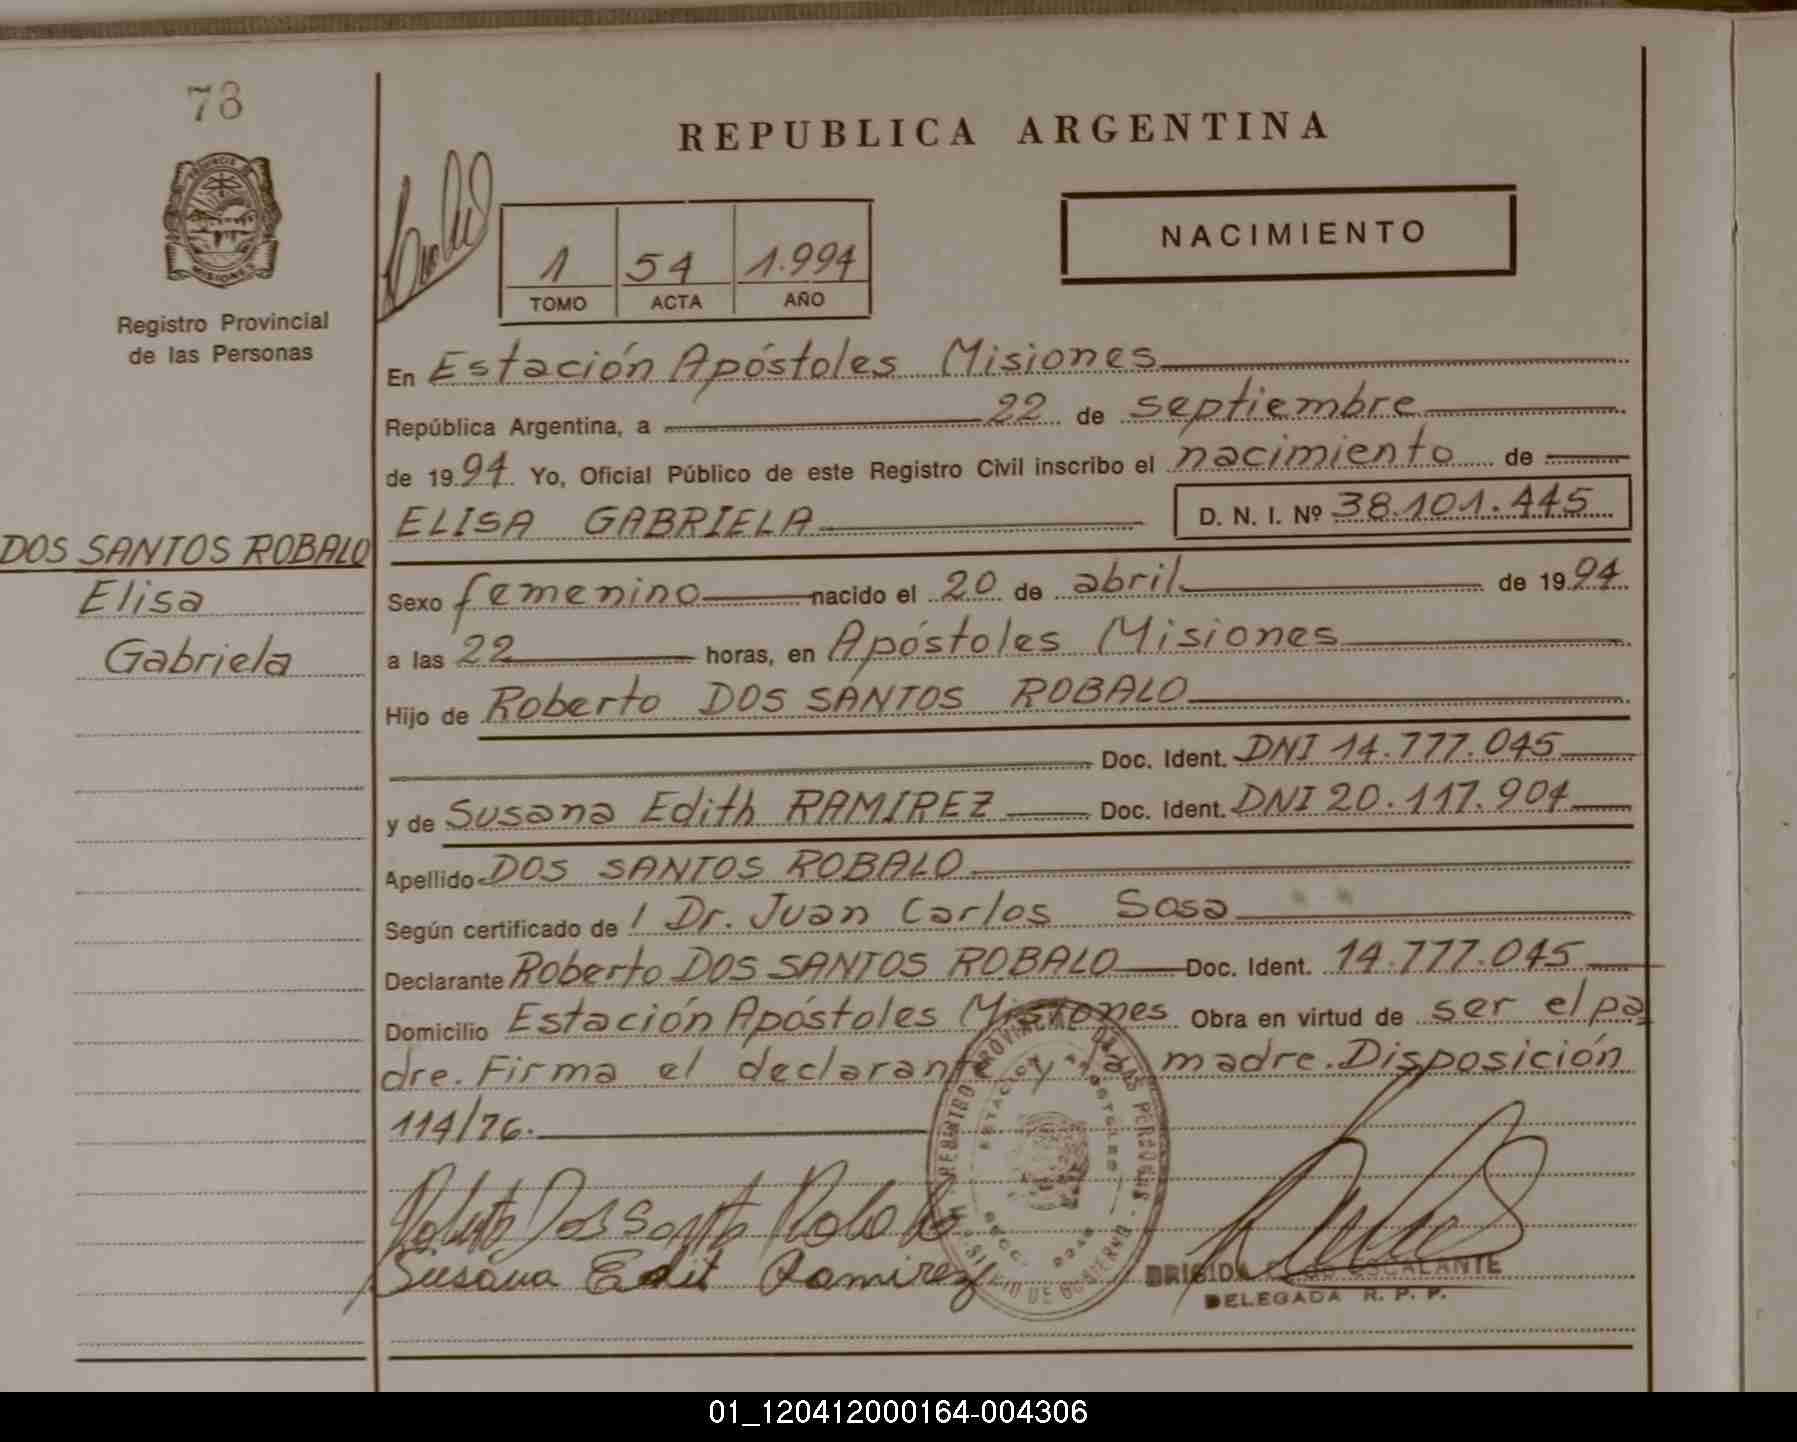 73
PROVINCIA DE
MISIONES
Registro Provincial
de las Personas
DOS SANTOS ROBALO
Elisa
Gabriela
REPUBLICA ARGENTINA
1 54 1.994
TOMO ACTA AÑO
NACIMIENTO
En Estación Apóstoles Misiones
República Argentina, a 22 de septiembre
de 1994. Yo, Oficial Público de este Registro Civil inscribo el nacimiento de
ELISA GABRIELA D. N. I. Nº 38.101.445
Sexo femenino nacido el 20 de abril de 1994
a las 22 horas, en Apóstoles Misiones
Hijo de Roberto DOS SANTOS ROBALO
Doc. Ident. DNI 14.777.045
y de Susana Edith RAMIREZ Doc. Ident. DNI 20.117.904
Apellido DOS SANTOS ROBALO
Según certificado de / Dr. Juan Carlos Sosa
Declarante Roberto DOS SANTOS ROBALO Doc. Ident. 14.777.045
Domicilio Estación Apóstoles Misiones Obra en virtud de ser el pa
dre. Firma el declarante y la madre. Disposición
114/76.
REGISTRO PROVINCIAL DE LAS PERSONAS
ESTACION APOSTOLES
MISIONES
Roberto Dos Santos Robalo
Susana Edit Ramirez
BRIGIDA ESCALANTE
DELEGADA R. P. P.
01_120412000164-004306